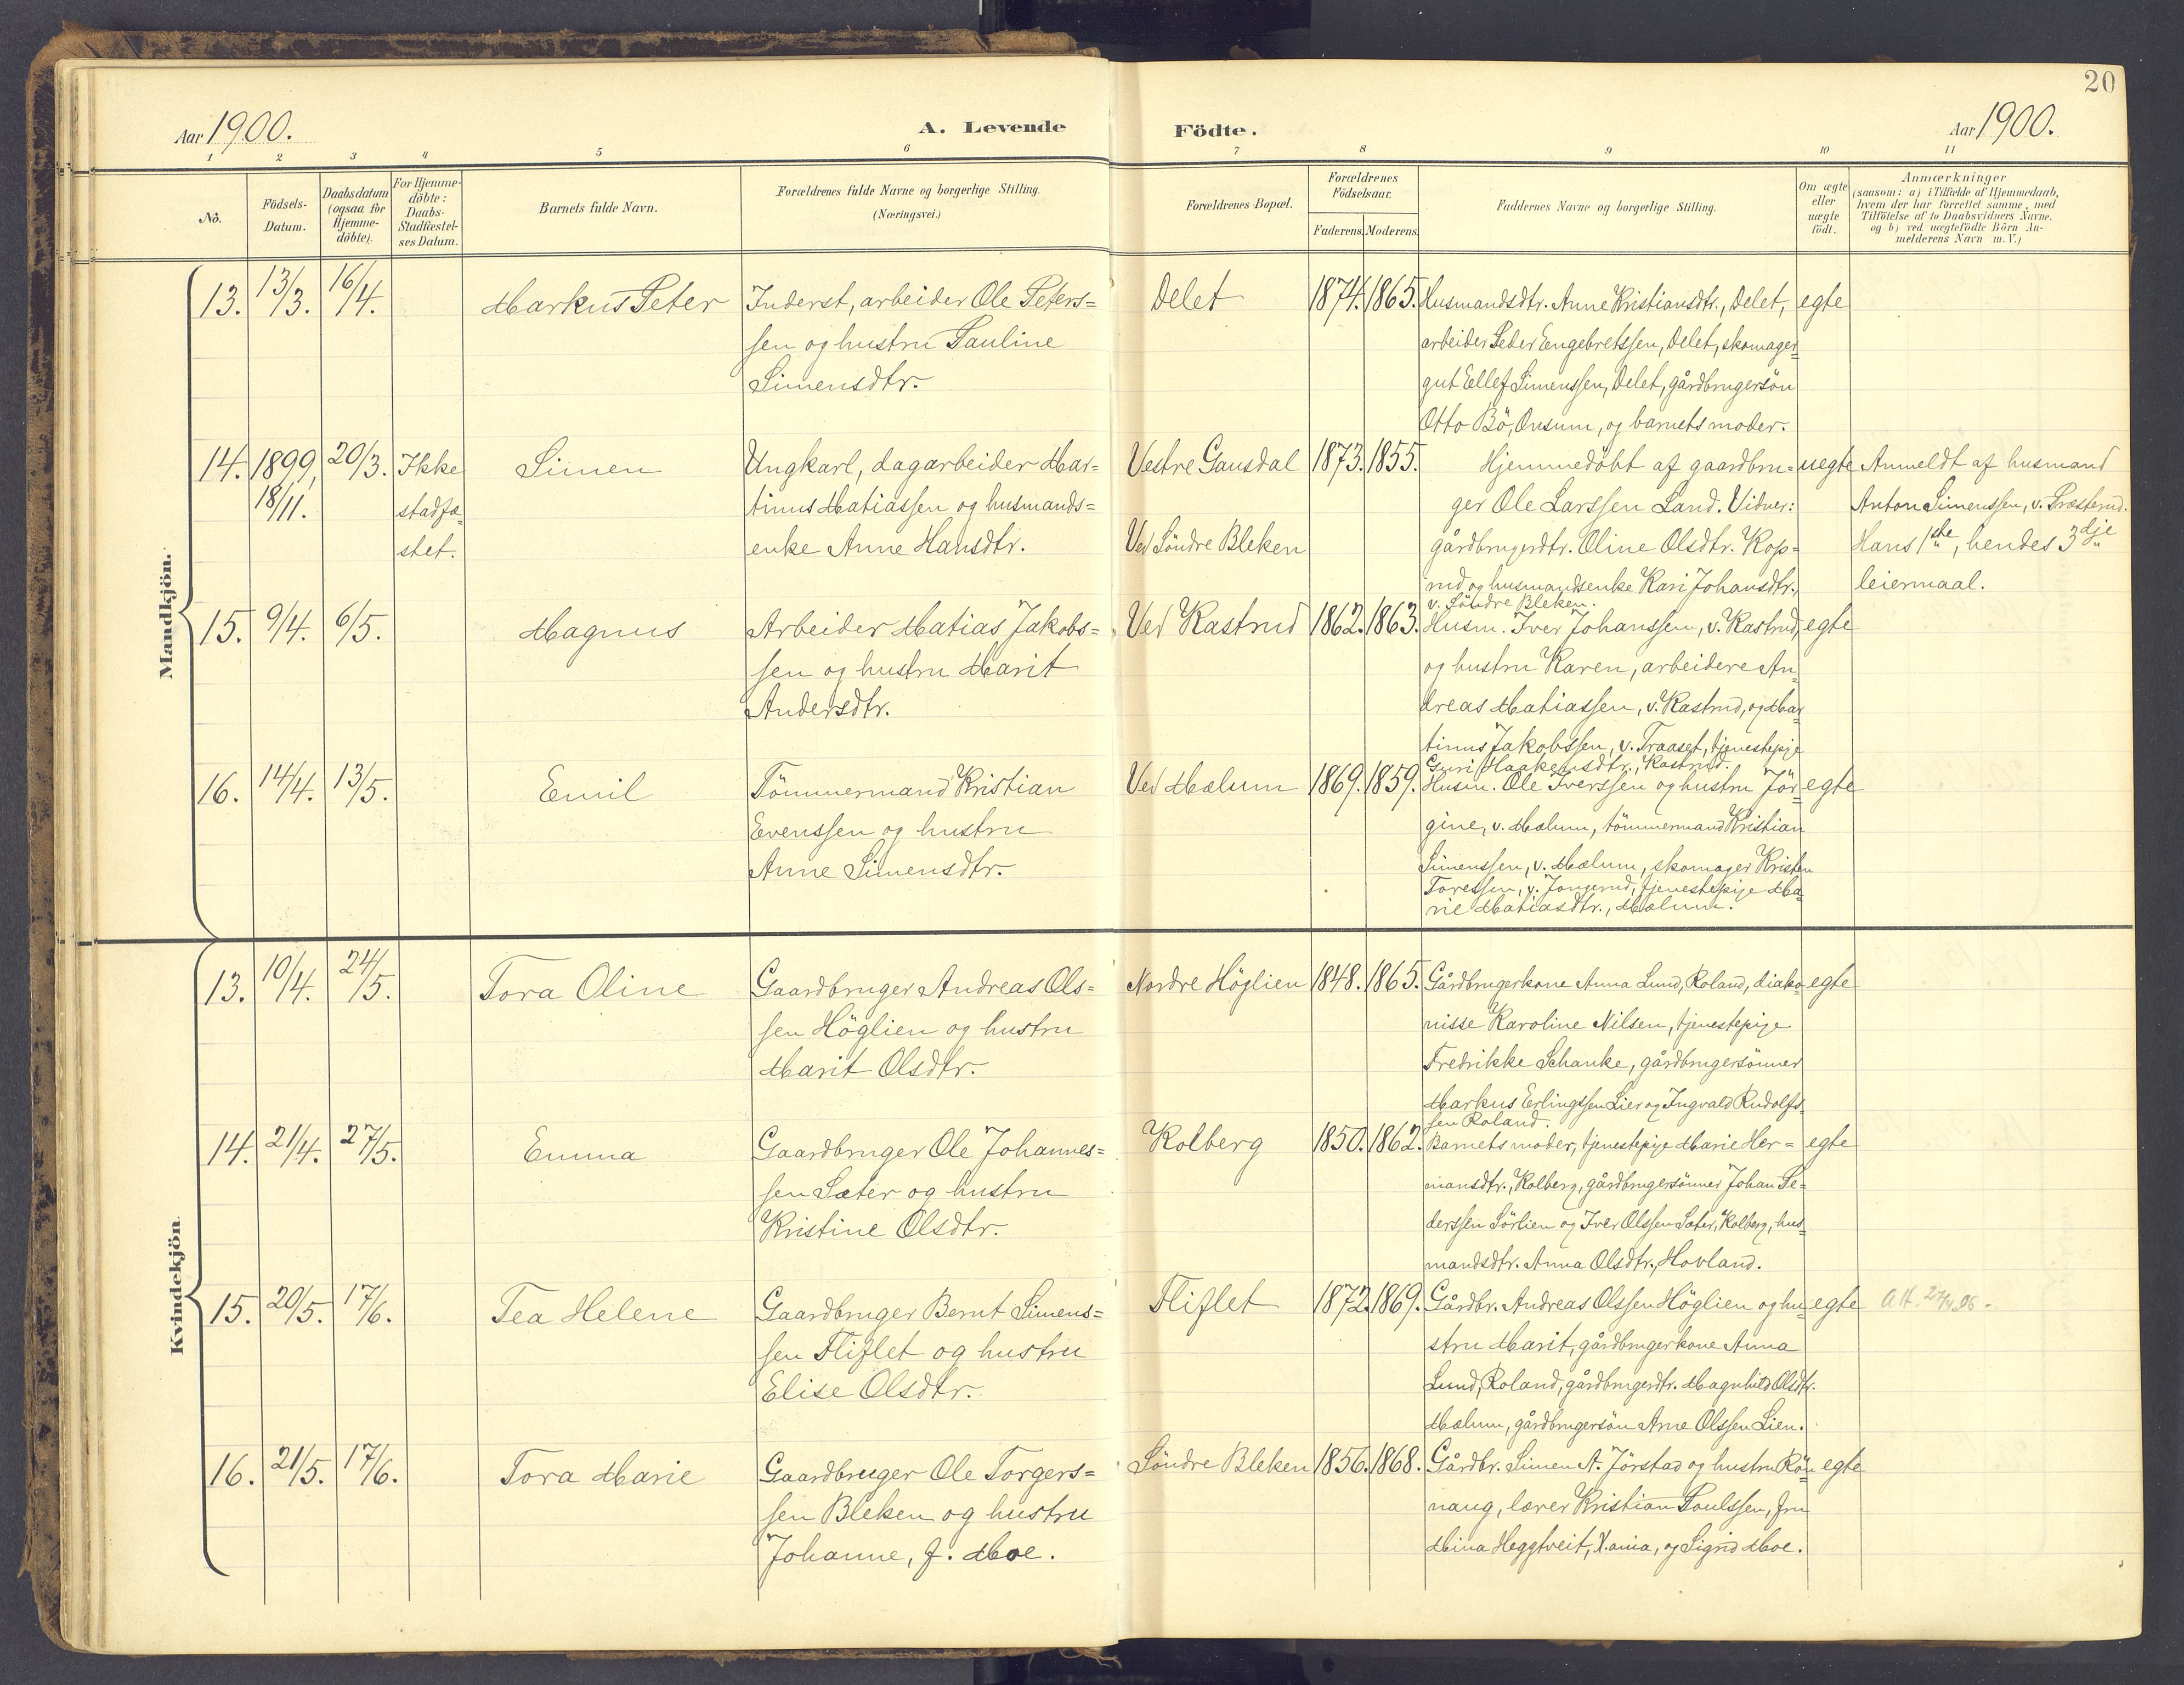 20
Aar 1900.
A. Levende
Födte.
Aar 1900.
1 2 3 4 5 6 7 8 9 10 11
No.
Födsels-
Datum.
Daabsdatum
(ogsaa for
Hjemme-
döbte).
For Hjemme-
döbte:
Daabs-
Stadfæstel-
ses Datum.
Barnets fulde Navn.
Forældrenes fulde Navne og borgerlige Stilling.
(Næringsvei.)
Forældrenes Bopæl.
Forældrenes
Födselsaar.
Faderens. Moderens.
Faddernes Navne og borgerlige Stilling.
Om ægte
eller
uægte
födt.
Anmærkninger
(saasom: a) i Tilfælde af Hjemmedaab,
hvem der har forrettet samme, med
Tilföielse af to Daabsvidners Navne.
og b) ved uægtefödte Börn An-
melderens Navn m. V.)
Mandkjön.
13. 13/3. 16/4.
Markus Peter
Inderst, arbeider Ole Peters=
sen og hustru Pauline
Simensdtr.
Delet
1874. 1865.
Husmandsdtr. Anne Kristiansdtr., Delet,
arbeider Peder Engebretssen, Delet, skomager
gut Ellef Simenssen, Delet, gårdbrugersön
Otto Bö, Onsum, og barnets moder.
egte
14. 1899, 18/11. 20/3.
Ikke
stadfæ
stet.
Simen
Ungkarl, dagarbeider Mar=
tinus Matiassen og husmands=
enke Anne Hansdtr.
Vestre Gausdal
Ved Söndre Bleken
1873. 1855.
Hjemmedöbt af gaardbru=
ger Ole Larssen Land. Vidner:
gårdbrugerdtr. Oline Olsdtr. Kop=
rud og husmandsenke Kari Johansdtr.,
v. Söndre Bleken.
uegte
Anmeldt af husmand
Anton Simenssen, v. Præsterud.
Hans 1ste, hendes 3dje
leiermaal.
15. 9/4. 6/5.
Magnus
Arbeider Matias Jakobs=
sen og hustru Marit
Andersdtr.
Ved Kastrud
1862. 1863.
Husm. Iver Johanssen, v. Kastrud,
og hustru Karen, arbeidere An
dreas Matiassen, v. Kastrud, og Mar
tinus Jakobssen, v. Traaset, tjenestepige
Guri Haakensdtr., Kastrud.
egte
16. 14/4. 13/5.
Emil
Tömmermand Kristian
Evenssen og hustru
Anne Simensdtr.
Ved Mælum
1869. 1859.
Husm. Ole Iverssen og hustru Jör
gine, v. Mælum, tömmermand Kristian
Simenssen, v. Mælum, skomager Kristen
Toressen, v. Jongerud, tjenestepige Ma
rie Matiasdtr., Mælum.
egte
Kvindekjön.
13. 10/4. 24/5.
Tora Oline
Gaardbruger Andreas Ols=
sen Höglien og hustru
Marit Olsdtr.
Nordre Höglien
1848. 1865.
Gårdbrugerkone Anna Lund, Roland, diako
nisse Karoline Nilsen, tjenestepige
Fredrikke Schanke, gårdbrugersönner
Markus Erlingssen Lier og Ingvald Rudolfs
sen Roland.
egte
14. 21/4. 27/5.
Emma
Gaardbruger Ole Johannes=
sen Sæter og hustru
Kristine Olsdtr.
Kolberg
1850. 1862.
Barnets moder, tjenestepige Marie Her=
mansdtr., Kolberg, gårdbrugersönner Johan Pe=
derssen Sörlien og Iver Olssen Sæter, Kolberg, hus
mandsdtr. Anna Olsdtr., Hovland.
egte
15. 20/5. 17/6.
Tea Helene
Gaardbruger Bernt Simens=
sen Fliflet og hustru
Elise Olsdtr.
Fliflet
1872. 1869.
Gårdbr. Andreas Olssen Höglien og hu
stru Marit, gårdbrugerkone Anna
Lund, Roland, gårdbrugerdtr. Magnhild Olsdtr.
Mælum, gårdbrugersön Arne Olssen Lien.
egte
16. 21/5. 17/6.
Tora Marie
Gaardbruger Ole Torgers=
sen Bleken og hustru
Johanne, f. Moe.
Söndre Bleken
1856. 1868.
Gårdbr. Simen A. Jörstad og hustru Rön
naug, lærer Kristian Poulssen, fru
Mina Heggtveit, X.ania, og Sigrid Moe.
egte